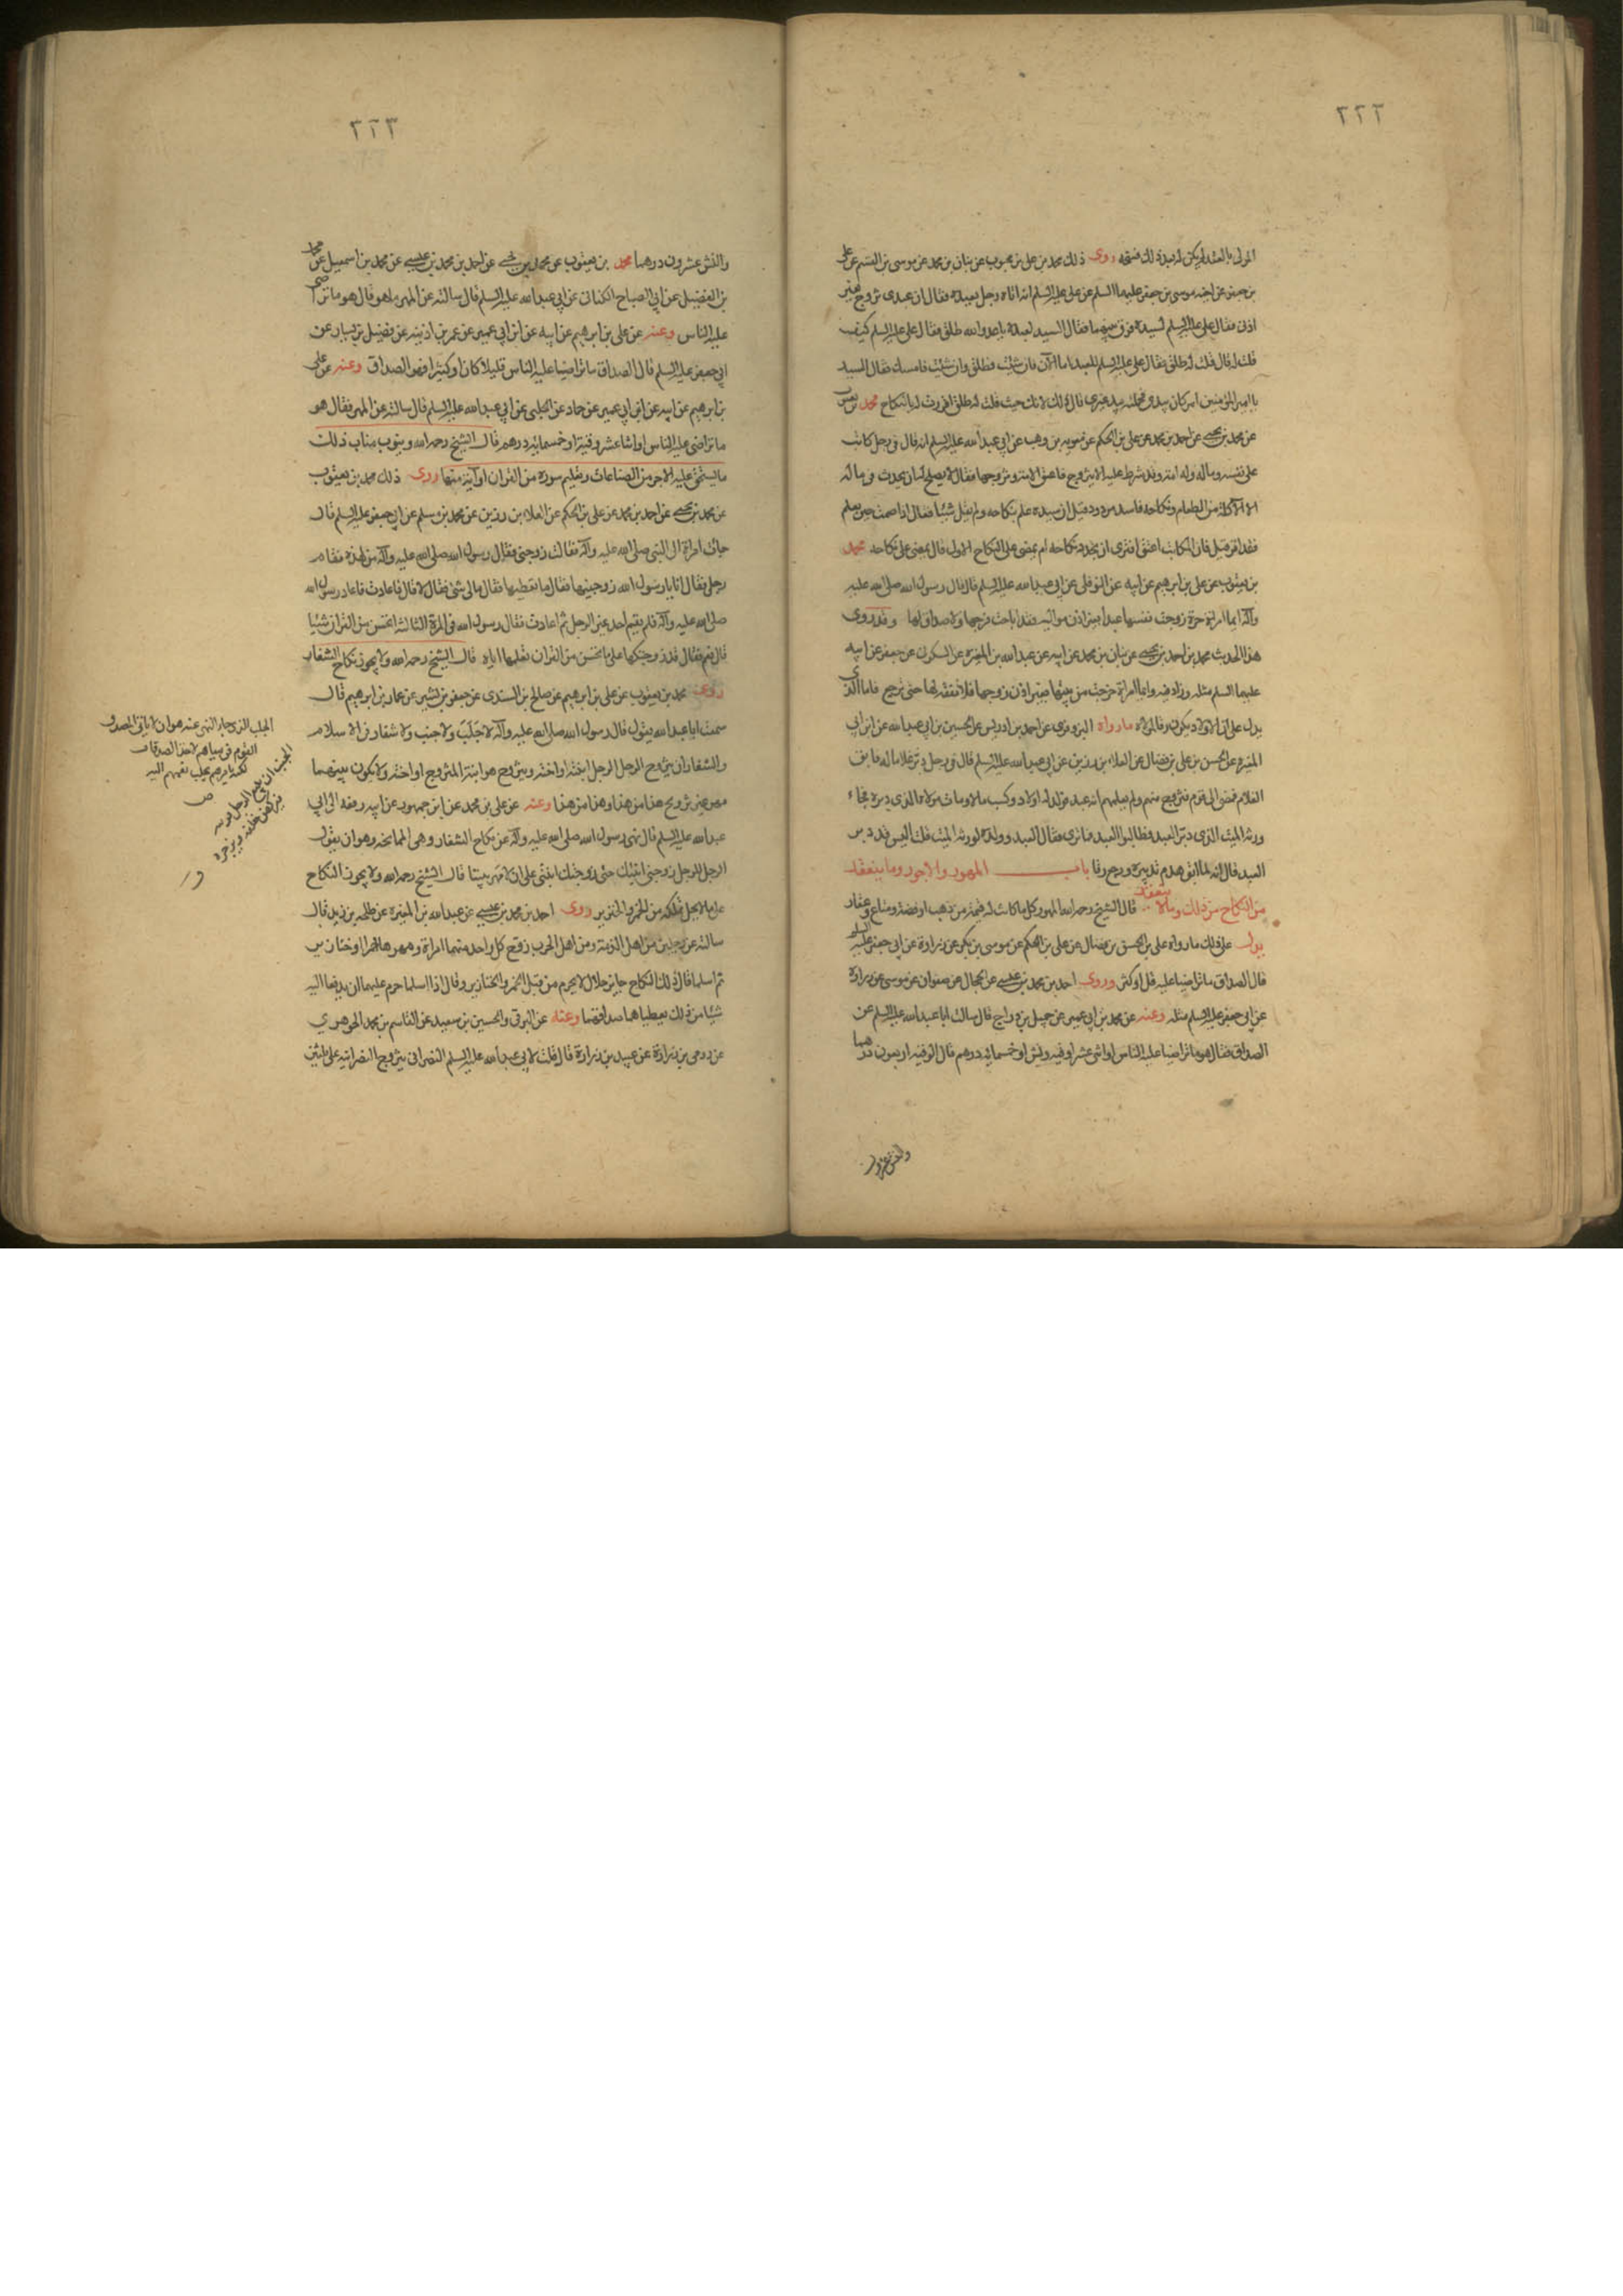 ٢٢٢
المولى بالعقد لم يكن له بعد ذلك فسخه روى ذلك محمد بن علي بن محبوب عن بنان بن محمد عن موسى بن القسم عن علي
بن جعفر عن اخيه موسى بن جعفر عليهما السلم عن علي عليه السلم انه اتاه رجل بعبده فقال ان عبدى تزوج بغير
اذنى فقال علي عليه السلم لسيده فرق بينهما فقال السيد لعبده يا عدو الله طلق فقال علي عليه السلم كيف
قلت له قال قلت له طلق فقال علي عليه السلم للعبد اما الآن فان شئت فطلق وان شئت فامسك فقال السيد
يا امير المؤمنين امر كان بيدى فجعلته بيد غيرى قال ذلك لانك حيث قلت له طلق اقررت له بالنكاح محمد بن يعقوب
عن محمد بن يحيى عن احمد بن محمد عن علي بن الحكم عن معوية بن وهب عن ابي عبد الله عليه السلم انه قال في رجل كاتب
على نفسه وماله وله امة وقد شرط عليه الا يتزوج فاعتق الامة وتزوجها فقال لا يصلح له ان يحدث في ماله
الا الاكلة من الطعام ونكاحه فاسد مردود قيل فان سيده علم بنكاحه ولم يقل شيئا فقال اذا صمت حين يعلم
فقد اقر قيل فان المكاتب اعتق افترى ان يجدد نكاحه ام يمضى على النكاح الاول قال يمضى على نكاحه محمد
بن يعقوب عن علي بن ابرهيم عن ابيه عن النوفلى عن ابي عبد الله عليه السلم قال قال رسول الله صلى الله عليه
وآله ايما امراة حرة زوجت نفسها عبدا بغير اذن مواليه فقد اباحت فرجها ولا صداق لها وقد روى
هذا الحديث محمد بن احمد بن يحيى عن بنان بن محمد عن ابيه عن عبد الله بن المغيرة عن السكونى عن جعفر عن ابيه
عليهما السلم مثله وزاد فيه وايما امراة خرجت من بيتها بغير اذن زوجها فلا نفقة لها حتى ترجع فاما الذى
يدل على ان الاولاد يكون رقا لمولاه ما رواه البزوفرى عن احمد بن ادريس عن الحسين بن ابي عبد الله عن ابن ابي
المغيرة عن الحسن بن علي بن فضال عن العلاء بن رزين عن ابي عبد الله عليه السلم قال في رجل دبر غلاما له فابق
الغلام فمضى الى قوم فتزوج منهم ولم يعلمهم انه عبد فولد له اولاد وكسب مالا ومات مولاه الذى دبره فجاء
ورثة الميت الذى دبر العبد فطالبوا العبد فما ترى فقال العبد وولده لورثة الميت قلت اليس قد دبر
العبد قال انه لما ابق هدم تدبيره ورجع رقا باب المهور والاجور وما ينعقد
من النكاح من ذلك وما لا ينعقد قال الشيخ رحمه الله المهور كل ما كانت له قيمة من ذهب او فضة ومتاع وعقار
يدل على ذلك ما رواه علي بن الحسن بن فضال عن علي بن الحكم عن موسى بن بكر عن زرارة عن ابي جعفر عليه السلم
قال الصداق ما تراضيا عليه قل او كثر وروى احمد بن محمد بن عيسى عن الحجال عن صفوان عن موسى عن زرارة
عن ابي جعفر عليه السلم مثله وعنه عن محمد بن ابي عمير عن جميل بن دراج قال سالت ابا عبد الله عليه السلم عن
الصداق فقال هو ما تراضيا عليه الناس او اثنى عشر اوقية ونش او خمسمائة درهم قال الوقية اربعون درهما
والنش عشرون
٢٢٣
والنش عشرون درهما محمد بن يعقوب عن محمد بن يحيى عن احمد بن محمد بن عيسى عن محمد بن اسمعيل عن محمد
بن الفضيل عن ابي الصباح الكناني عن ابي عبد الله عليه السلم قال سالته عن المهر ما هو قال هو ما تراضى
عليه الناس وعنه عن علي بن ابرهيم عن ابيه عن ابن ابي عمير عن عمر بن اذينه عن فضيل بن يسار عن
ابي جعفر عليه السلم قال الصداق ما تراضيا عليه الناس قليلا كان او كثيرا فهو الصداق وعنه عن علي
بن ابرهيم عن ابيه عن ابن ابي عمير عن حماد عن الحلبى عن ابي عبد الله عليه السلم قال سالته عن المهر فقال هو
ما تراضى عليه الناس او اثنا عشر وقية او خمسمائة درهم قال الشيخ رحمه الله وينوب مناب ذلك
ما يستحق عليه الاجر من الصناعات وتعليم سورة من القران او آية منها روى ذلك محمد بن يعقوب
عن محمد بن يحيى عن احمد بن محمد عن علي بن الحكم عن العلاء بن رزين عن محمد بن مسلم عن ابي جعفر عليه السلم قال
جاءت امراة الى النبي صلى الله عليه وآله فقالت زوجنى فقال رسول الله صلى الله عليه وآله من لهذه فقام
رجل فقال انا يا رسول الله زوجنيها فقال ما تعطيها فقال مالى شئ فقال لا قال فاعادت فاعاد رسول الله
صلى الله عليه وآله فلم يقم احد غير الرجل ثم اعادت فقال رسول الله في المرة الثالثة اتحسن من القران شيئا
قال نعم فقال قد زوجتكها على ما تحسن من القران تعلمها اياه قال الشيخ رحمه الله ولا يجوز نكاح الشغار
روى محمد بن يعقوب عن علي بن ابرهيم عن صالح بن السندى عن جعفر بن بشير عن غياث بن ابرهيم قال
سمعت ابا عبد الله يقول قال رسول الله صلى الله عليه وآله لا جلب ولا جنب ولا شغار في الاسلام
والشغار ان يزوج الرجل الرجل ابنته او اخته ويتزوج هو ابنة المتزوج او اخته ولا يكون بينهما
مهر غير تزويج هذا من هذا وهذا من هذا وعنه عن علي بن محمد عن ابن جمهور عن ابيه رفعه الى ابي
عبد الله عليه السلم قال نهى رسول الله صلى الله عليه وآله عن نكاح الشغار وهى الممانحة وهو ان يقول
الرجل للرجل زوجنى ابنتك حتى ازوجك ابنتى على ان لا مهر بينهما قال الشيخ رحمه الله ولا يجوز النكاح
على ما لا يحل تملكه من الخمر والخنزير روى احمد بن محمد بن عيسى عن عبد الله بن المغيرة عن طلحة بن زيد قال
سالته عن رجلين من اهل الذمة ومن اهل الحرب تزوج كل واحد منهما امراة ومهرهما خمرا وخنازير
ثم اسلما قال ذلك النكاح جايز حلال لا يحرم من قبل الخمر والخنازير وقال اذا اسلما حرم عليهما ان يدفعا اليه
شيئا من ذلك يعطياهما صداقهما وعنه عن البرقى والحسين بن سعيد عن القاسم بن محمد الجوهري
عن رومى بن زرارة عن عبيد بن زرارة قال قلت لابي عبد الله عليه السلم النصرانى يتزوج النصرانية على ثلثين
الجلب الذى جاء النهى عنه هو ان لا ياتى المصدق
القوم في مياههم لاخذ الصدقات
لكن يامرهم بجلب نعمهم اليه
ص